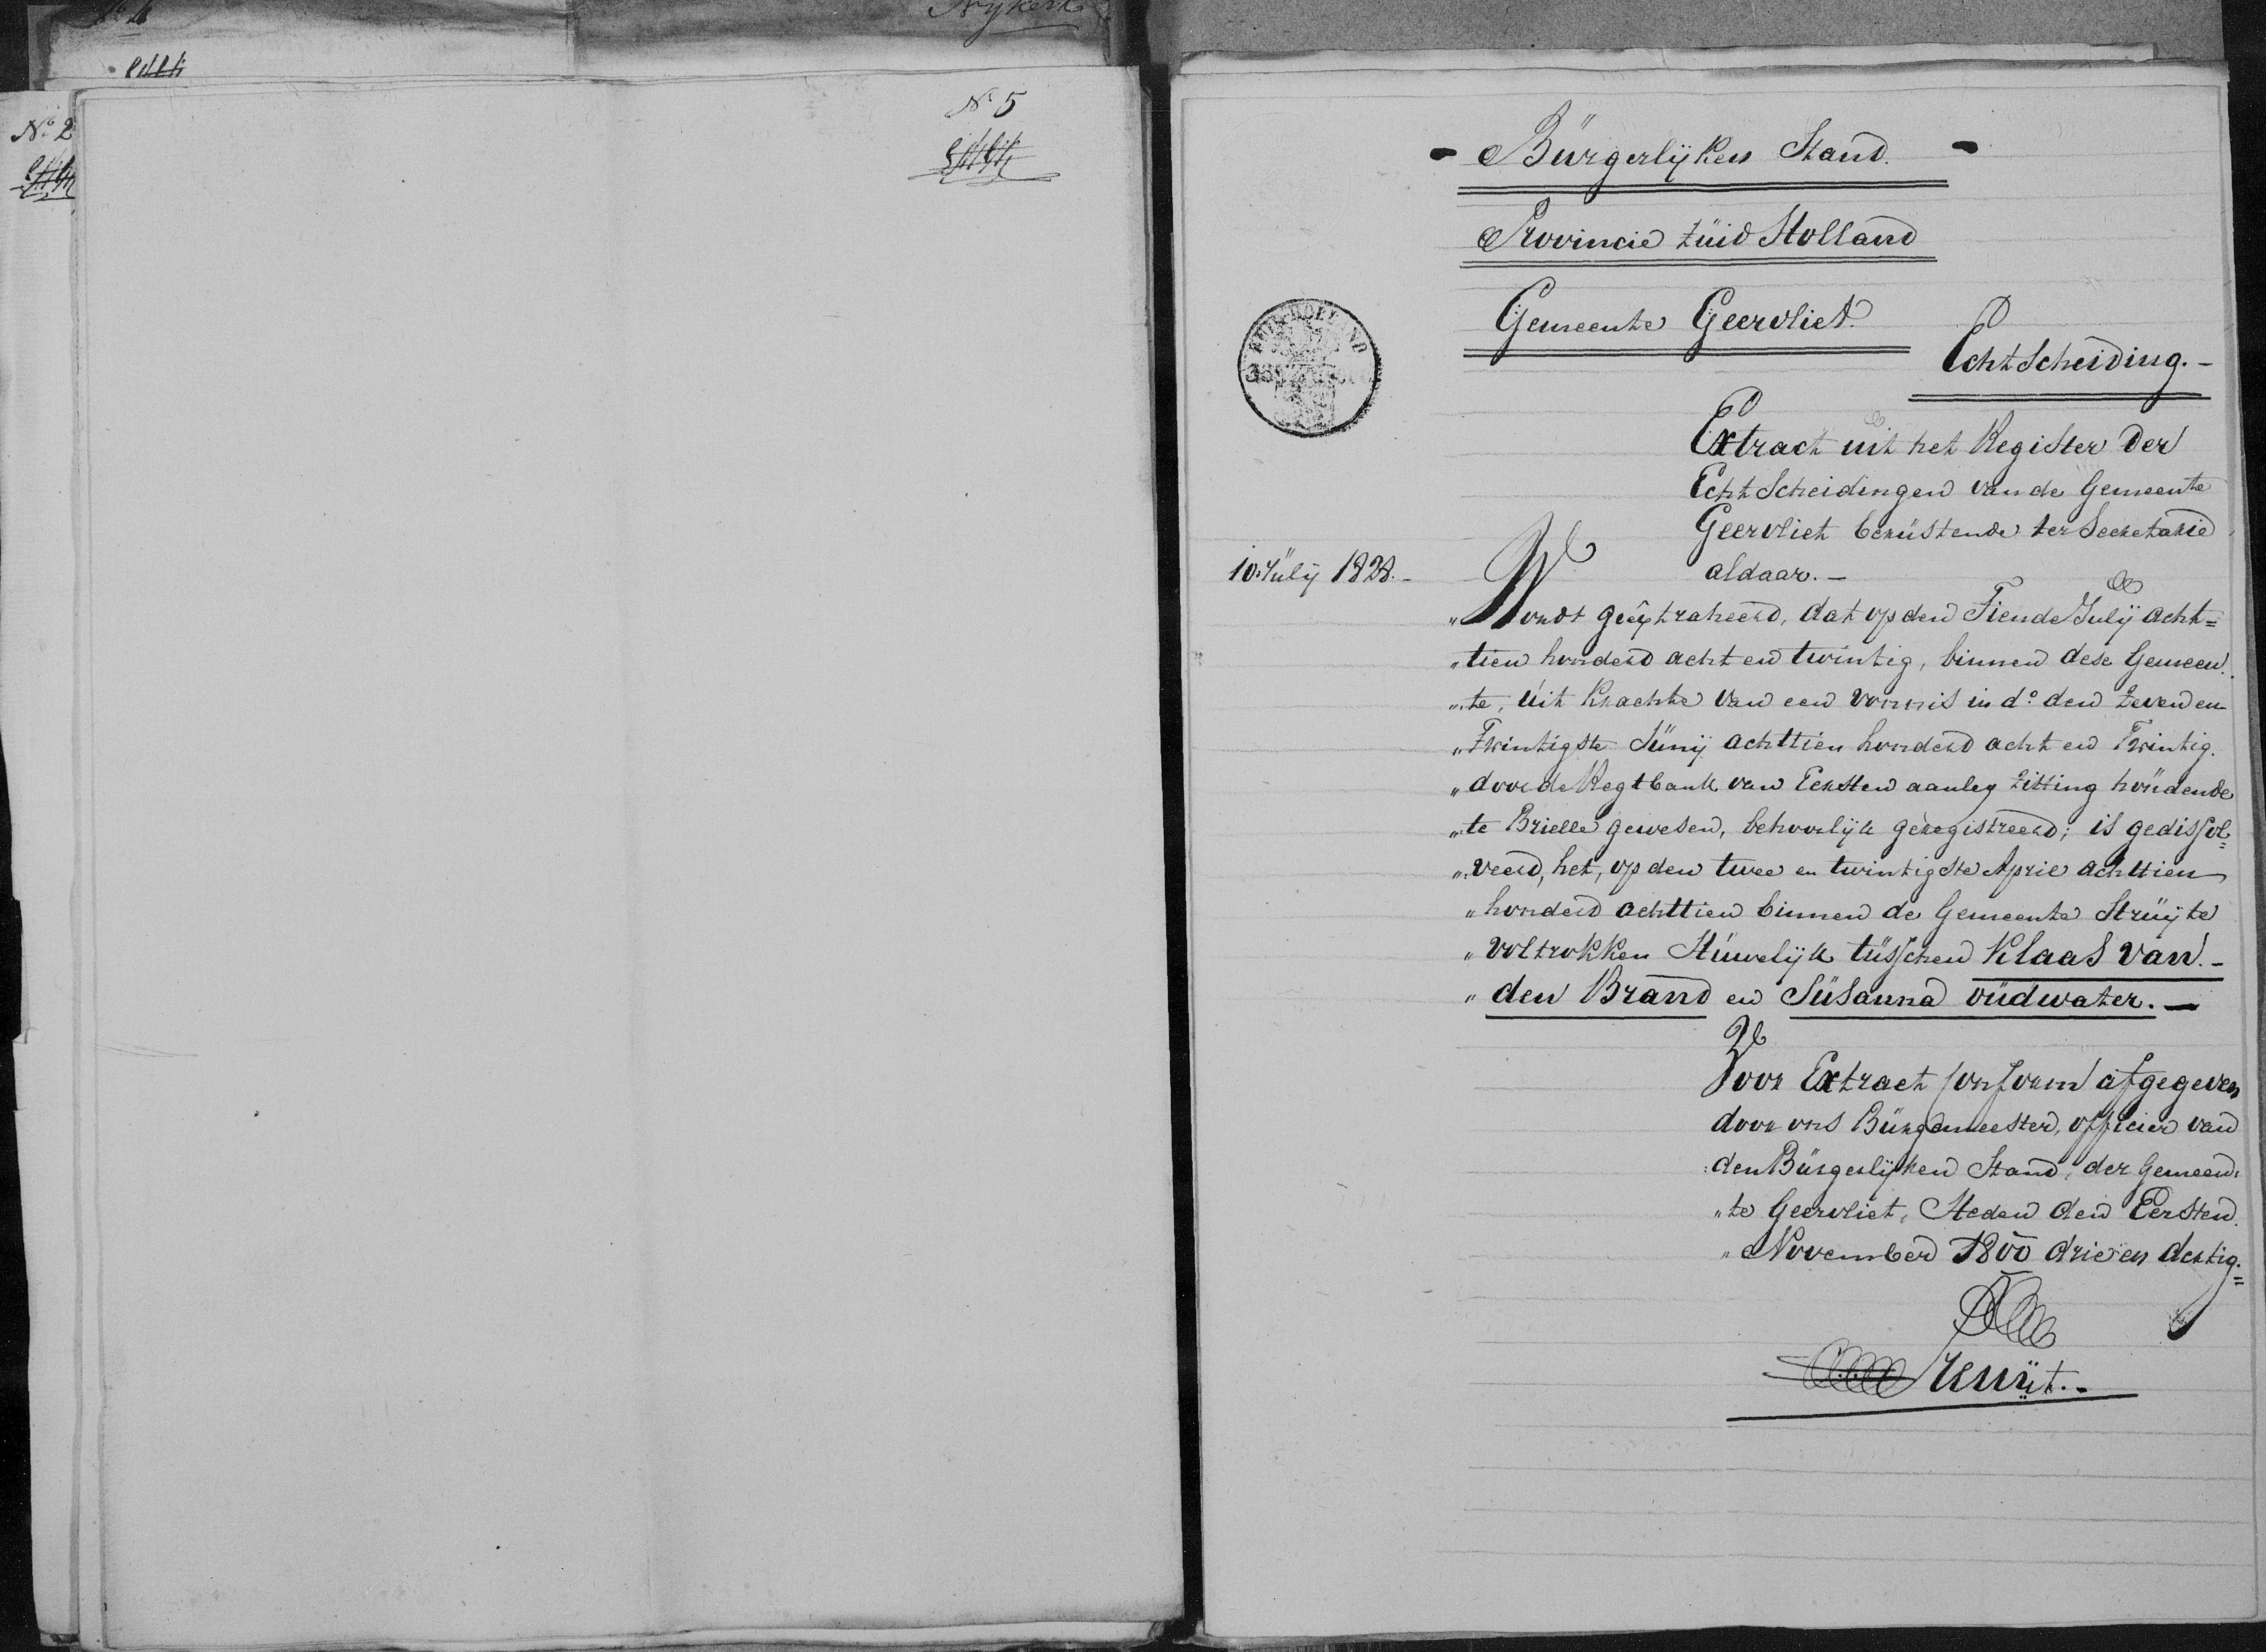 Nykerk
N° 2
N° 5
Bürgerlyken Stand.
Provincie Züid Holland
Gemeente Geervliet.
EchtScheiding.-
ZUID HOLLAND
Extract uit het Register der
EchtScheidingen van de Gemeente
Geervliet berüstende ter Secretarie
10. July 1828.-
aldaar.-
"Wordt geëxtraheerd, dat op den Tiende July acht=
"tien honderd acht en twintig, binnen dese Gemeen
"te, uit krachte van een vonnis in d° den zeven en
"Twintigste Jüny achttien honderd acht en Twintig.
"door de Regtbank van Eersten aanleg Zitting hoüdende
"te Brielle gewesen, behoorlyk geregistreerd; is gedissol=
"veerd, het, op den twee en twintigste April achttien
"honderd achttien binnen de Gemeente Strüyte
"voltrokken Hüwelyk tüsschen Klaas van.-
"den Brand en Süsanna oüdwater.-
Voor Extract Conform afgegeven
door ons Bürgemeester, officier van
den Bürgerlyken Stand, der Gemeen=
"te Geervliet, Heden den Eersten
"November 1800 drie en dertig.=